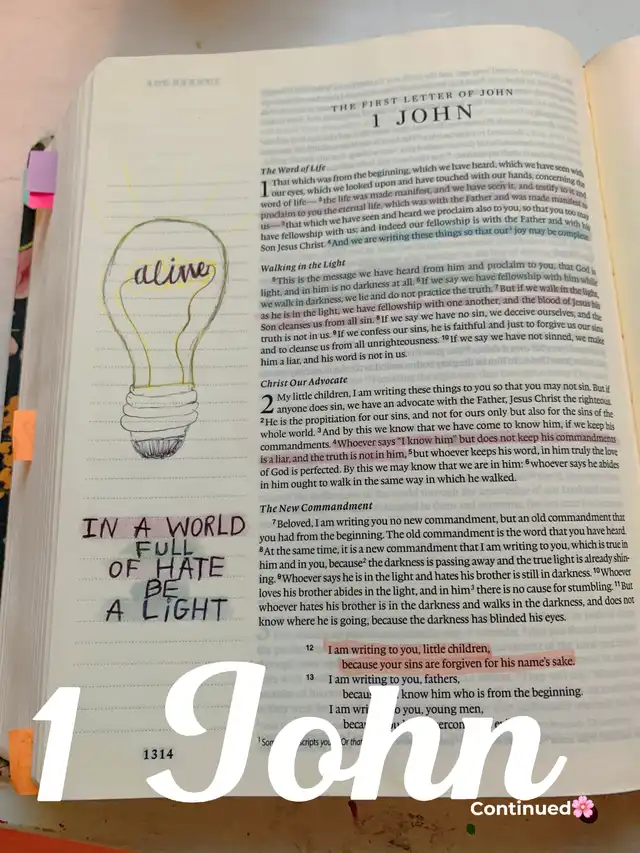 THE FIRST LETTER OF JOHN
1 JOHN
The Word of Life
1 That which was from the beginning, which we have heard, which we have seen with
our eyes, which we looked upon and have touched with our hands, concerning the
word of life— ²the life was made manifest, and we have seen it, and testify to it and
proclaim to you the eternal life, which was with the Father and was made manifest to
us— ³that which we have seen and heard we proclaim also to you, so that you too may
have fellowship with us; and indeed our fellowship is with the Father and with his
Son Jesus Christ. ⁴And we are writing these things so that our¹ joy may be complete.
Walking in the Light
⁵This is the message we have heard from him and proclaim to you, that God is
light, and in him is no darkness at all. ⁶If we say we have fellowship with him while
we walk in darkness, we lie and do not practice the truth. ⁷But if we walk in the light,
as he is in the light, we have fellowship with one another, and the blood of Jesus his
Son cleanses us from all sin. ⁸If we say we have no sin, we deceive ourselves, and the
truth is not in us. ⁹If we confess our sins, he is faithful and just to forgive us our sins
and to cleanse us from all unrighteousness. ¹⁰If we say we have not sinned, we make
him a liar, and his word is not in us.
Christ Our Advocate
2 My little children, I am writing these things to you so that you may not sin. But if
anyone does sin, we have an advocate with the Father, Jesus Christ the righteous.
²He is the propitiation for our sins, and not for ours only but also for the sins of the
whole world. ³And by this we know that we have come to know him, if we keep his
commandments. ⁴Whoever says "I know him" but does not keep his commandments
is a liar, and the truth is not in him, ⁵but whoever keeps his word, in him truly the love
of God is perfected. By this we may know that we are in him: ⁶whoever says he abides
in him ought to walk in the same way in which he walked.
The New Commandment
⁷Beloved, I am writing you no new commandment, but an old commandment that
you had from the beginning. The old commandment is the word that you have heard.
⁸At the same time, it is a new commandment that I am writing to you, which is true in
him and in you, because² the darkness is passing away and the true light is already shin-
ing. ⁹Whoever says he is in the light and hates his brother is still in darkness. ¹⁰Whoever
loves his brother abides in the light, and in him³ there is no cause for stumbling. ¹¹But
whoever hates his brother is in the darkness and walks in the darkness, and does not
know where he is going, because the darkness has blinded his eyes.
12 I am writing to you, little children,
because your sins are forgiven for his name's sake.
13 I am writing to you, fathers,
know him who is from the beginning.
I am you, young men,
alive
IN A WORLD
FULL
OF HATE
BE
A LIGHT
1314
1 John
Continued🌸